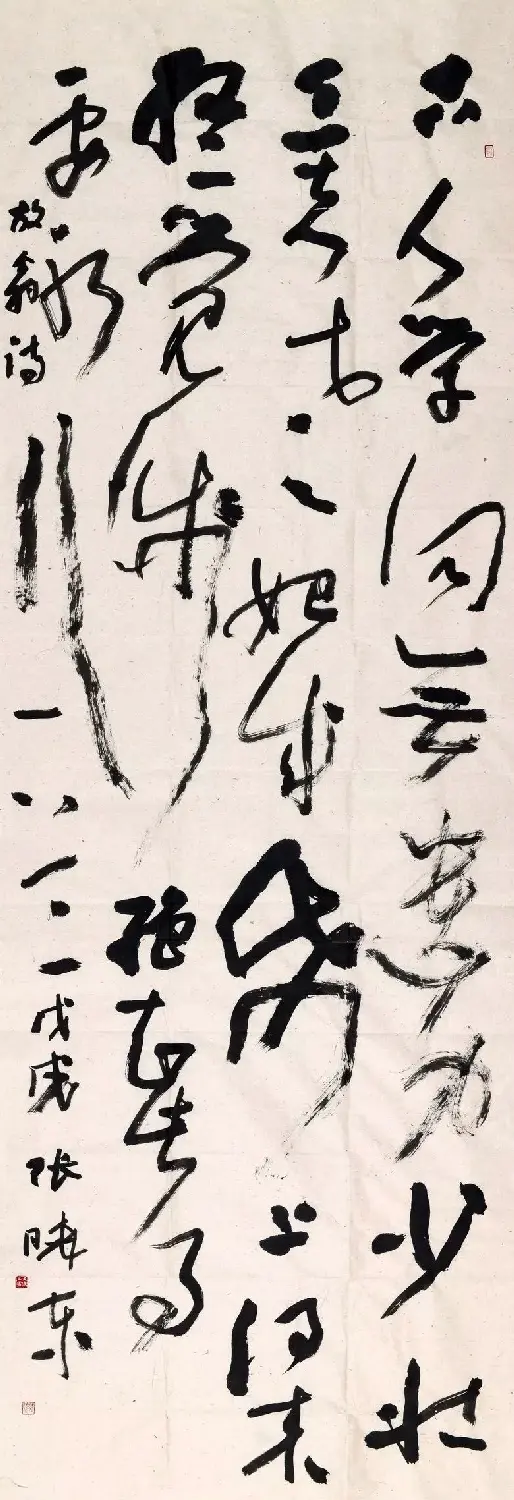 古人学问无遗力少壮
工夫老始成纸上得来
终觉浅绝知此事
要躬行
放翁诗
一八 戊戌张晓东